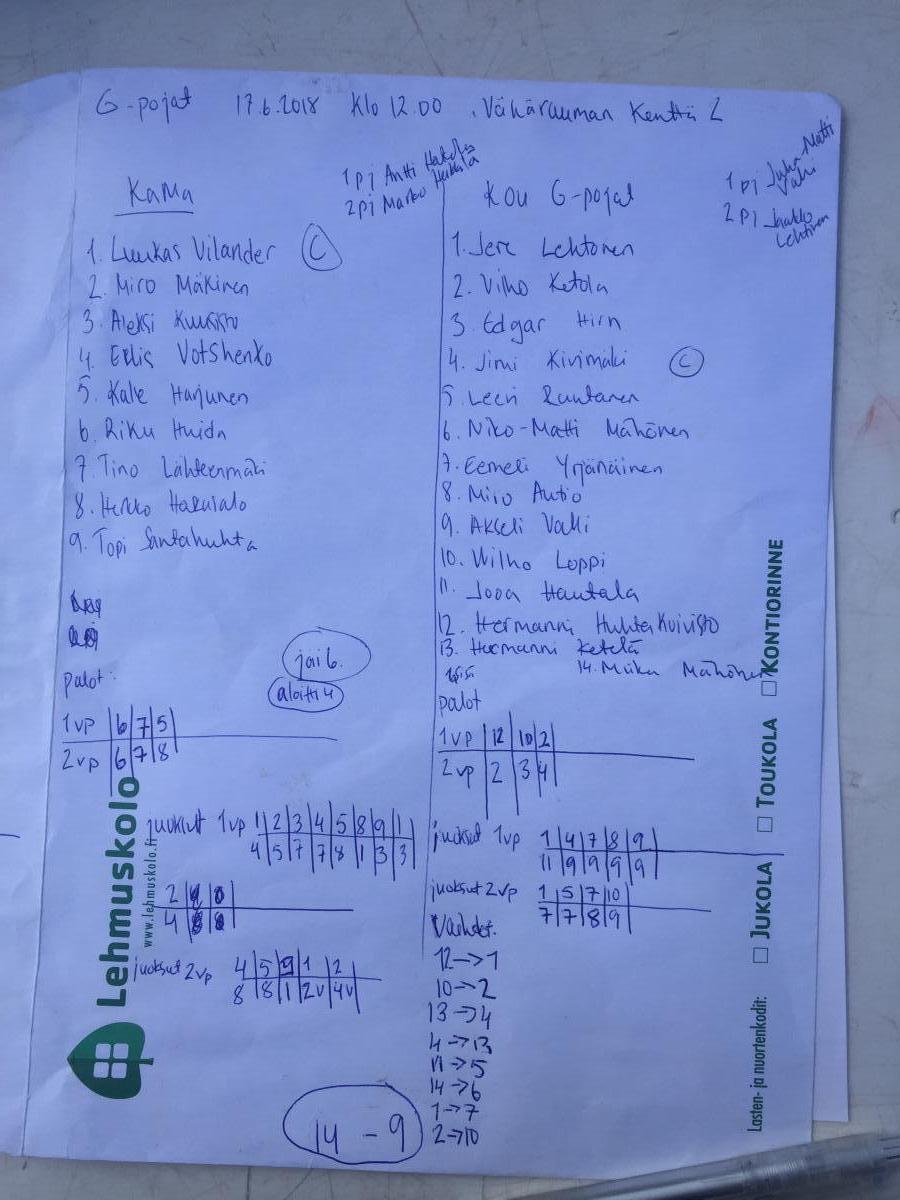 G-pojat 17.6.2018 Klo 12.00 Vähärauman Kenttä 2
KaMa
1 pj Antti
2 pj Marko
1. Luukas Vilander C
2. Miro Mäkinen
3. Aleksi
4. Eelis Votshenko
5. Kalle Harjunen
6. Riku Huida
7. Tino Lähteenmäki
8. Heikko Hakulalo
9. Topi Santahuhta
jäi 6.
aloitti 4
palot:
1vp 6 7 5
2vp 6 7 8
juoksut 1vp 1 2 3 4 5 8 9 1
4 5 7 7 8 1 3 3
2
4
juoksut 2vp 4 5 9 1 2
8 8 1 2v 4v
14 - 9
KOU G-pojat
1 pj Juha-Matti
Vahi
2 pj Jaakko
Lehtinen
1. Jere Lehtonen
2. Vilho Ketola
3. Edgar Hirn
4. Jimi Kivimäki C
5. Leevi Rautanen
6. Niko-Matti Mähönen
7. Eemeli Yrjänäinen
8. Miro Autio
9. Akseli Valli
10. Wilho Loppi
11. Joona Hautala
12. Hermanni Huhtakuivisto
13. Hermanni Ketelä
14. Miika Mähönen
palot
1vp 12 10 2
2vp 2 3 4
juoksut 1vp 1 4 7 8 9
11 9 9 9 9
juoksut 2vp 1 5 7 10
7 7 8 9
Vaihdot:
12->1
10->2
13->4
4->13
11->5
14->6
1->7
2->10
Lehmuskolo
www.lehmuskolo.fi
Lasten- ja nuortenkodit: JUKOLA TOUKOLA KONTIORINNE